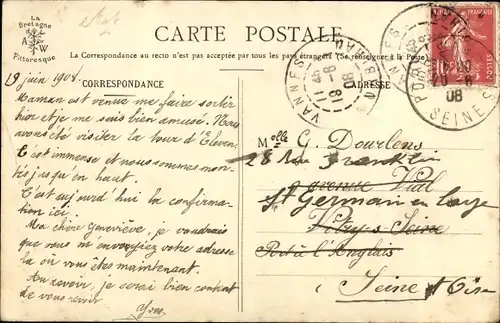 La
Bretagne
A W
Pittoresque
CARTE POSTALE
La Correspondance au recto n'est pas acceptée par tous les pays étrangers (Se renseigner à la Poste)
CORRESPONDANCE
ADRESSE
19 juin 1908.
Maman est venue me faire sortir
hier et je me suis bien amusé. Nous
avons été visiter la tour d'Elven
C'est immense et nous sommes mon-
tés jusqu'en haut.
C'est aujourd'hui la confirma-
tion ici.
Ma chère Geneviève, je voudrais
que vous m'envoyiez votre adresse
là où vous êtes maintenant.
Au revoir, je serai bien content
de vous revoir
Yves
VANNES
MORBIHAN
08
Melle G. Dourlens
28 Rue Franklin
avenue Vial
St Germain en Laye
Vitry s/ Seine
Port à l'Anglais
Seine & Oise
SEINE
08
10
POSTES